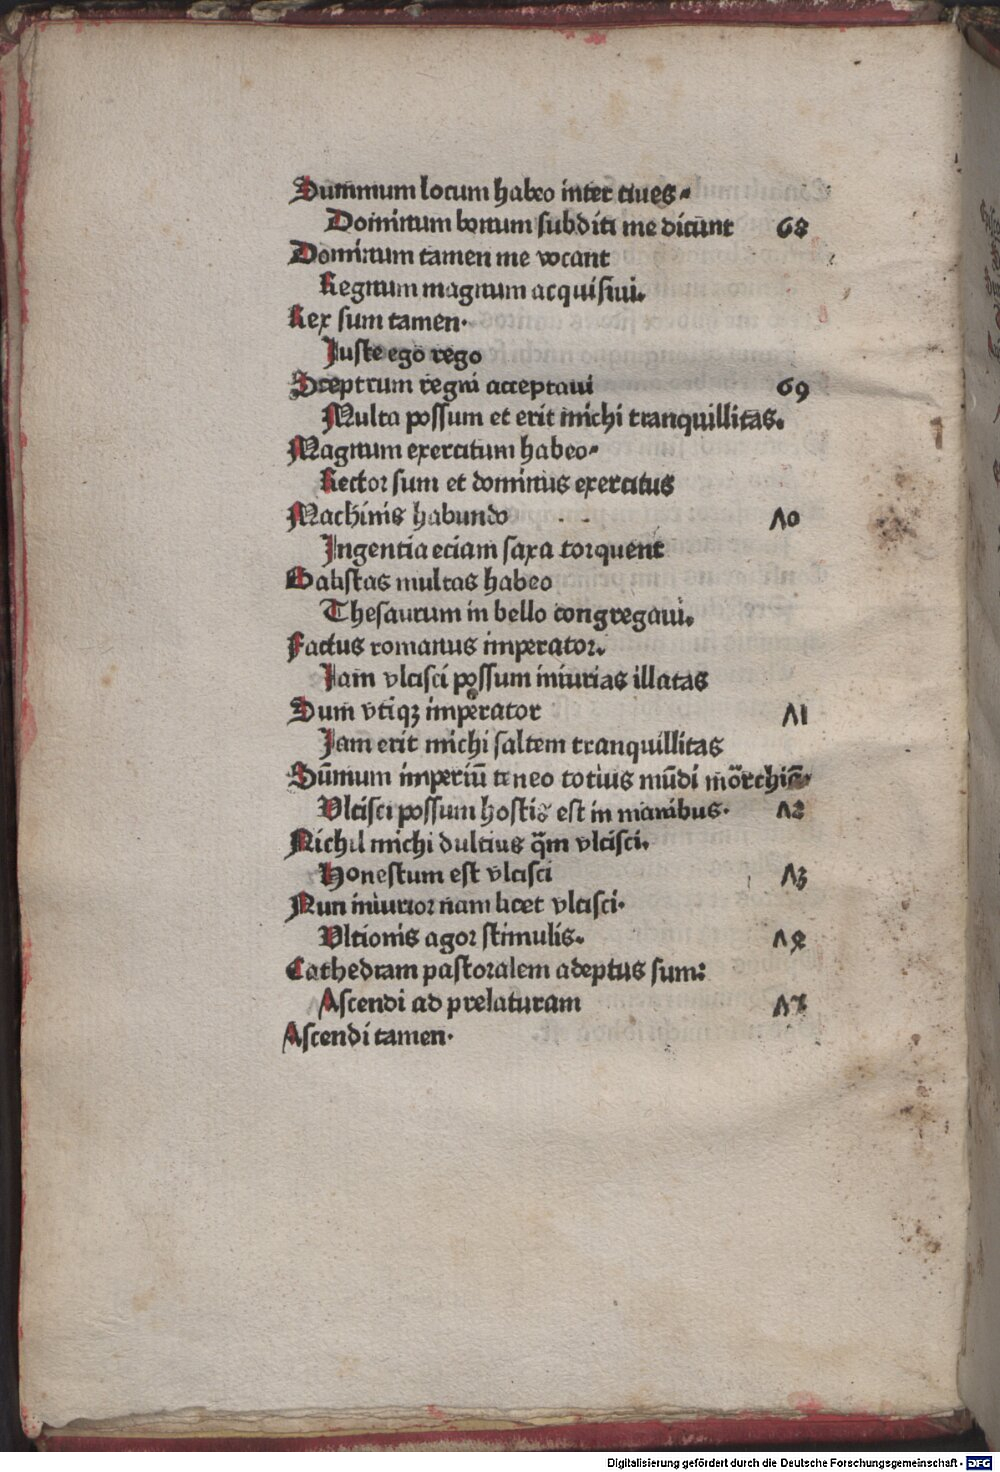 Summum locum habeo inter ciues
Dominum bonum subditi me dicunt 68
Dominum tamen me vocant
Regnum magnum acquisiui.
Rex sum tamen.
Iuste ego rego
Sceptrum regni acceptaui 69
Multa possum et erit michi tranquillitas.
Magnum exercitum habeo
Rector sum et dominus exercitus
Machinis habundo Λ0
Ingentia eciam saxa torquent
Balistas multas habeo
Thesaurum in bello congregaui.
Factus romanus imperator.
Iam vlcisci possum iniurias illatas
Sum vtiqꝫ imperator Λ1
Iam erit michi saltem tranquillitas
Sūmum imperiū teneo totius mūdi
Vlcisci possum hostis est in manibus. Λ2
Nichil michi dulcius q̄m vlcisci.
Honestum est vlcisci Λ3
Nun iniurior nam licet vlcisci.
Vltionis agor stimulis. Λ4
Cathedram pastoralem adeptus sum:
Ascendi ad prelaturam Λ5
Ascendi tamen.
Digitalisierung gefördert durch die Deutsche Forschungsgemeinschaft - DFG